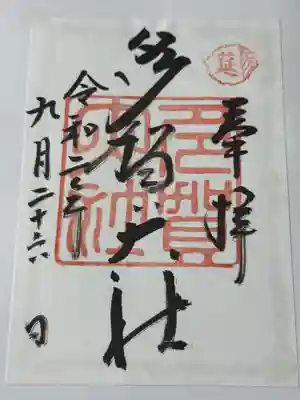 奉拝
多賀大社
令和二年
九月二十六日
多賀大社